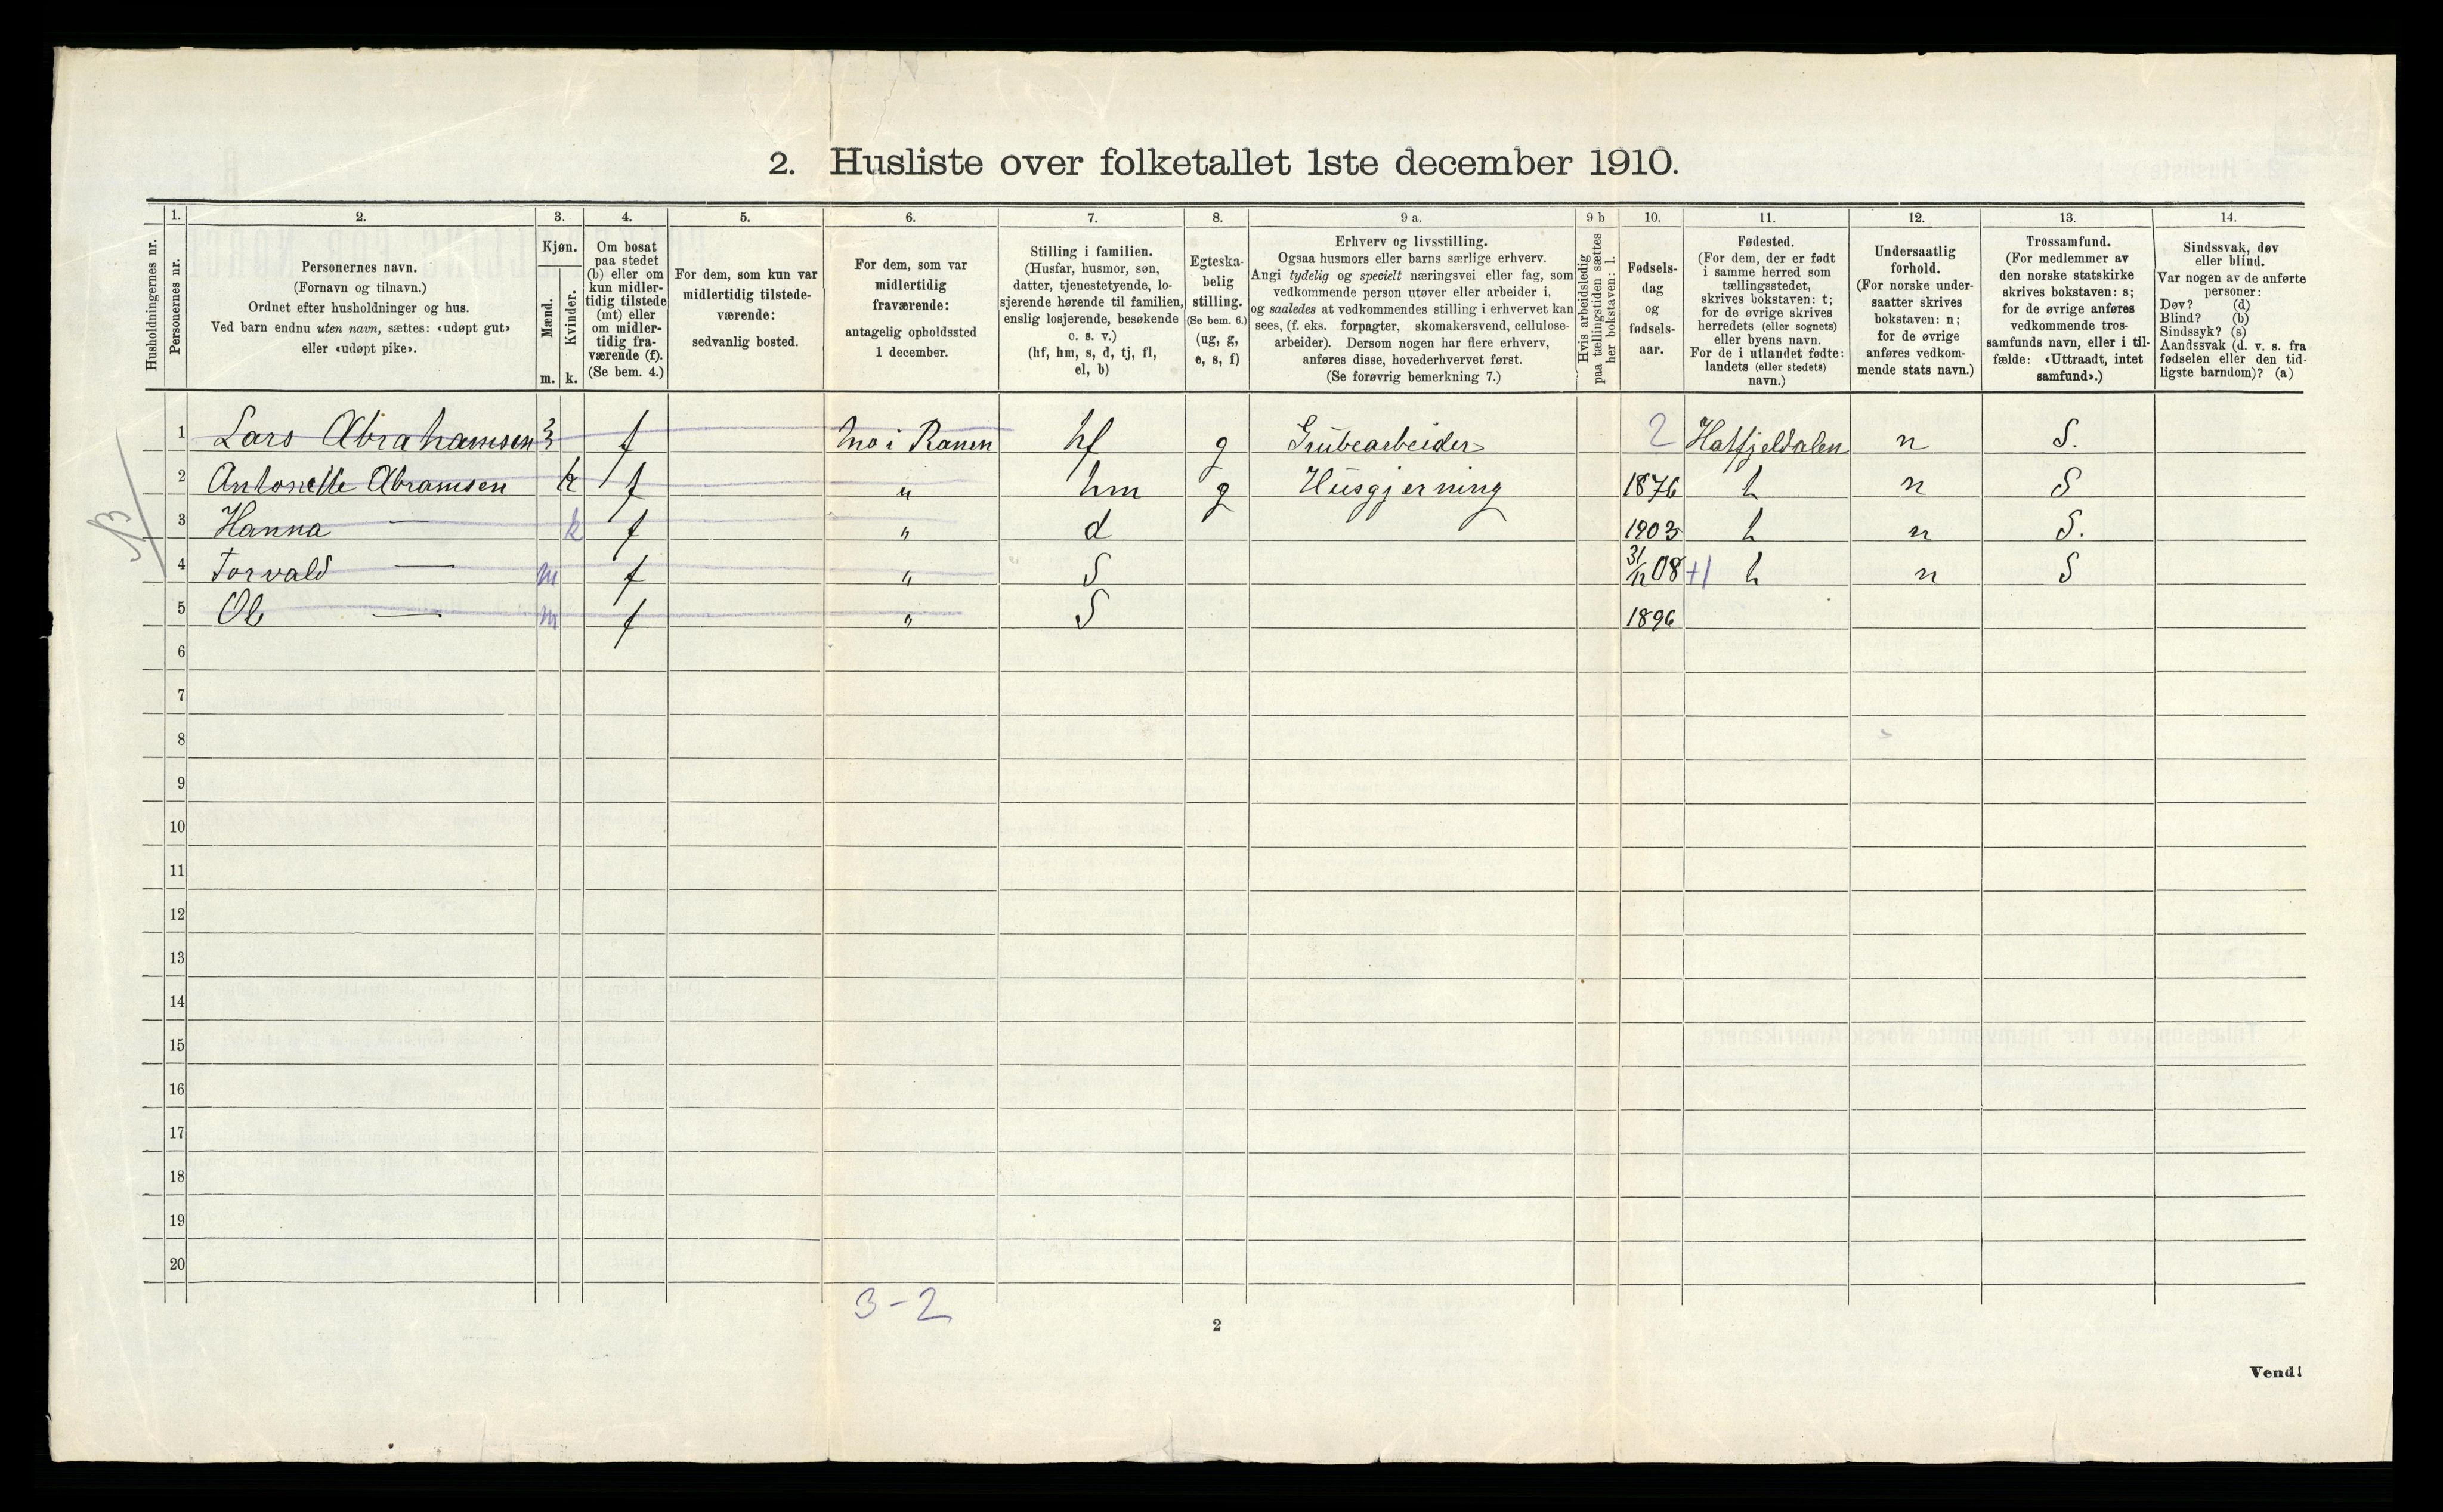 2. Husliste over folketallet 1ste december 1910.
1. 2. 3. 4. 5. 6. 7. 8. 9 a. 9 b 10. 11. 12. 13. 14.
Husholdningernes nr.
Personernes nr.
Personernes navn.
(Fornavn og tilnavn.)
Ordnet efter husholdninger og hus.
Ved barn endnu uten navn, sættes: «udøpt gut»
eller «udøpt pike».
Kjøn.
Mænd.
Kvinder.
m. k.
Om bosat
paa stedet
(b) eller om
kun midler-
tidig tilstede
(mt) eller
om midler-
tidig fra-
værende (f).
(Se bem. 4.)
For dem, som kun var
midlertidig tilstede-
værende:
sedvanlig bosted.
For dem, som var
midlertidig
fraværende:
antagelig opholdssted
1 december.
Stilling i familien.
(Husfar, husmor, søn,
datter, tjenestetyende, lo-
sjerende hørende til familien,
enslig losjerende, besøkende
o. s. v.)
(hf, hm, s, d, tj, fl,
el, b)
Egteska-
belig
stilling.
(Se bem. 6.)
(ug, g,
e, s, f)
Erhverv og livsstilling.
Ogsaa husmors eller barns særlige erhverv.
Angi tydelig og specielt næringsvei eller fag, som
vedkommende person utøver eller arbeider i,
og saaledes at vedkommendes stilling i erhvervet kan
sees, (f. eks. forpagter, skomakersvend, cellulose-
arbeider). Dersom nogen har flere erhverv,
anføres disse, hovederhvervet først.
(Se forøvrig bemerkning 7.)
Hvis arbeidsledig
paa tællingstiden sættes
her bokstaven: l.
Fødsels-
dag
og
fødsels-
aar.
Fødested.
(For dem, der er født
i samme herred som
tællingsstedet,
skrives bokstaven: t;
for de øvrige skrives
herredets (eller sognets)
eller byens navn.
For de i utlandet fødte:
landets (eller stedets)
navn.)
Undersaatlig
forhold.
(For norske under-
saatter skrives
bokstaven: n;
for de øvrige
anføres vedkom-
mende stats navn.)
Trossamfund.
(For medlemmer av
den norske statskirke
skrives bokstaven: s;
for de øvrige anføres
vedkommende tros-
samfunds navn, eller i til-
fælde: «Uttraadt, intet
samfund».)
Sindssvak, døv
eller blind.
Var nogen av de anførte
personer:
Døv? (d)
Blind? (b)
Sindssyk? (s)
Aandssvak (d. v. s. fra
fødselen eller den tid-
ligste barndom)? (a)
1 Lars Abrahamsen f Mo i Ranen hf g Grubearbeider 2 Hatfjeldalen n S.
2 Antonette Abramsen k f " hm g Husgjerning 1876 n S
3 Hanna — k f " d 1903 n S.
4 Torvald — m f " S 31/12 08 +1 n S
5 Ol — m f " S 1896
6
7
8
9
10
11
12
13
14
15
16
17
18
19
20
3-2
2
Vend!